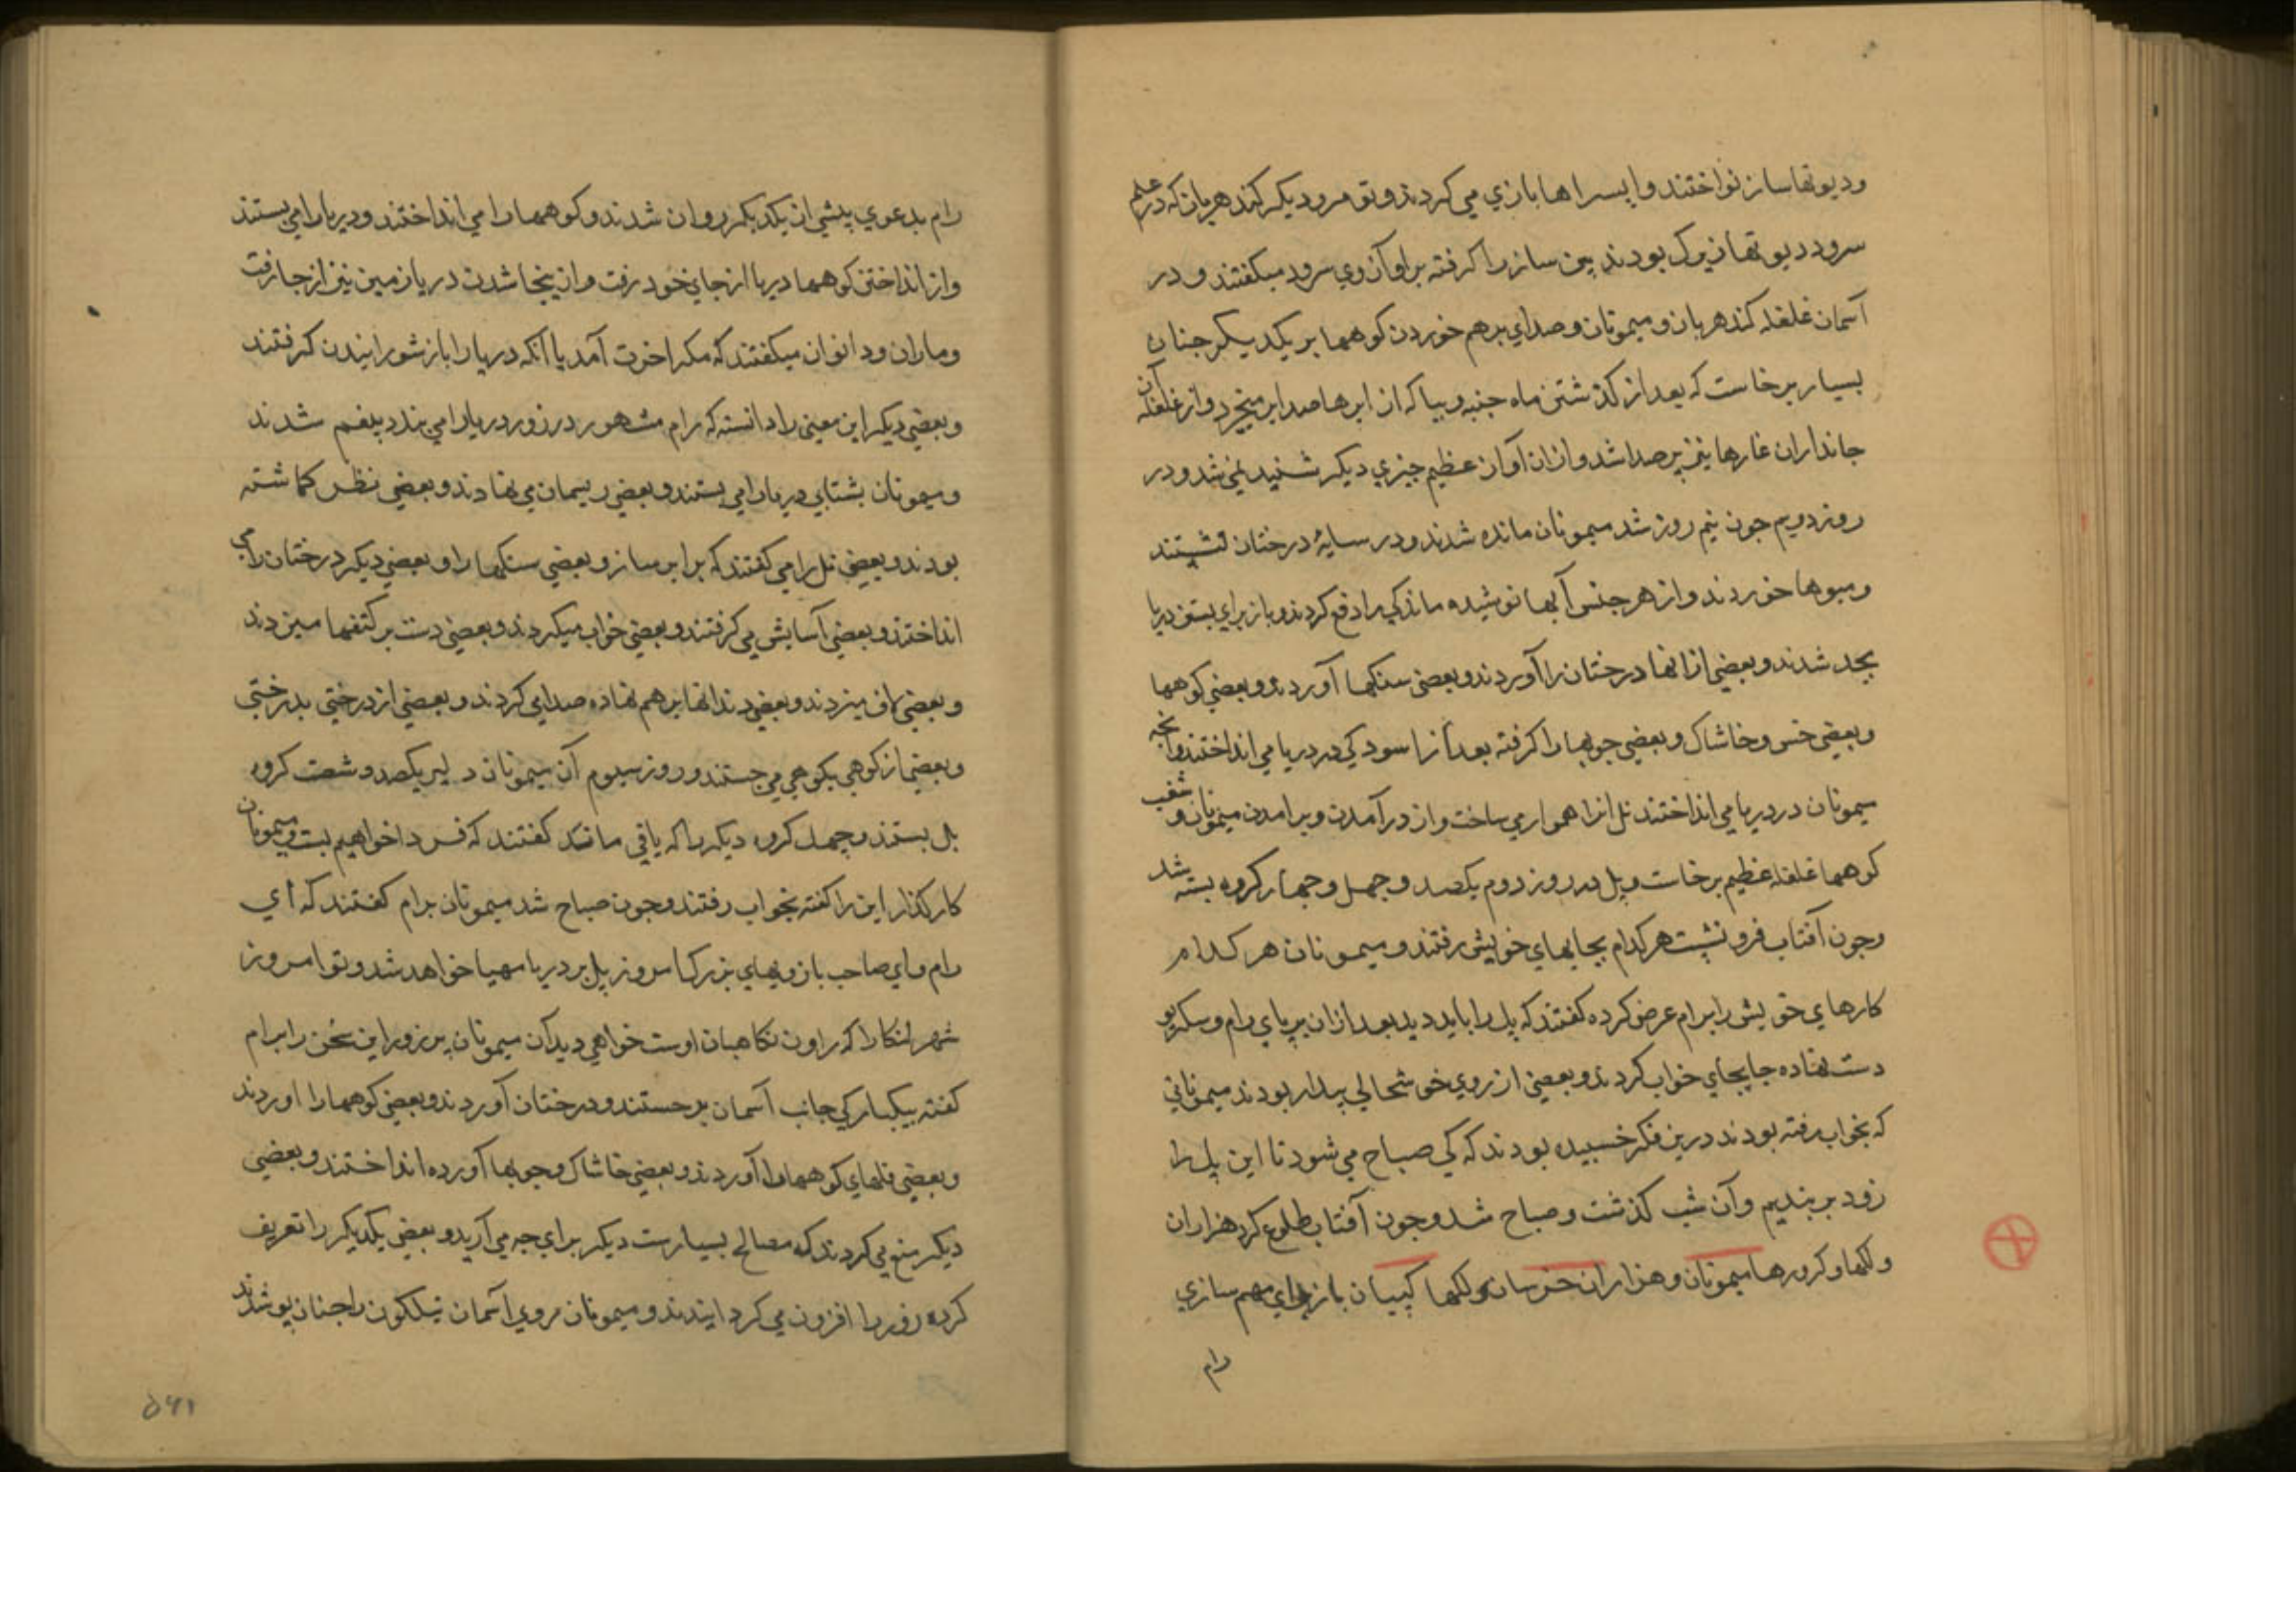 ودیوتها ساز نواختند و اپسراها بازی می کردند و تو مرو دیکر کندهربان که در علم
سرود دیوتها بزرک بودند بین ساز را کرفته بر اواز وی سرود میکفتند و در
آسمان غلغله کندهربان و میمونان و صدای برهم خوردن کوهها بر یکدیکر جنان
بسیار برخاست که بعد از کذشتن ماه جیته وبیساکه از ابرها صدا بر میخیزد و از غلغلهٔ آن
جانداران غارها نیز پر صدا شد و ازان آواز عظیم جیزی دیکر شنیده نمی شد و در
روز دویم جون نیم روز شد میمونان مانده شدند و در سایهٔ درختان نشستند
ومیوها خوردند و از هر جنس آبها نوشیده ماندکی را دفع کردند و باز برای بستن دریا
بجد شدند و بعضی از انها درختان را آوردند و بعضی سنکها آوردند و بعضی کوهها
و بعضی خس و خاشاک و بعضی جوبها را کرفته بعد از اسودکی در دریا می انداختند و انجه
میمونان در دریا می انداختند نل انرا همواری ساخت و از در آمدن و برامدن میمونان و شغب
کوهها غلغله عظیم برخاست و پل در روز دوم یکصد و جهل و جهار کروه بسته شد
وجون آفتاب فرو نشست هر کدام بجایهای خویش رفتند و میمونان هر کدام
کارهای خویش را برام عرض کرده کفتند که پل را باید دید بعد ازان بر پای رام و سکریو
دست نهاده جا بجای خواب کردند و بعضی از روی خوشحالی بیدار بودند میمونانی
که بخواب رفته بودند درین فکر خسبیده بودند که کی صباح می شود تا این پل را
زود بر بندیم و آن شب کذشت و صباح شد و جون آفتاب طلوع کرد هزاران
ولکها و کرورها میمونان و هزاران خرسان و لکها کپیان باز برای مهم سازی
رام
رام بدعوی پیشی از یکدیکر روان شدند و کوهها را می انداختند و دریا را می بستند
و از انداختن کوهها دریا از جای خود رفت و از بیجا شدن دریا زمین نیز از جا رفت
و ماران و دانوان میکفتند که مکر اخرت آمد یا آنکه دریا را باز شورانیدن کرفتند
و بعضی دیکر این معنی را دانسته که رام مشهور در زور دریا را می بندد بیغم شدند
و میمونان بشتابی دریا را می بستند و بعضی ریسمان می نهادند و بعضی نظر کماشته
بودند و بعضی نل را می کفتند که برابر ساز و بعضی سنکها را و بعضی دیکر درختان را می
انداختند و بعضی آسایش می کرفتند و بعضی خواب میکردند و بعضی دست بر کتفها میزدند
و بعضی لاف میزدند و بعضی دندانها بر هم نهاده صدا می کردند و بعضی از درختی بدرختی
و بعضی از کوهی بکوهی می جستند و روز سیوم آن میمونان دلیر یکصد و شصت کروه
پل بستند و جهل کروه دیکر را که باقی ماند کفتند که فردا خواهیم بست و میمونان
کارکذار این را کفته بخواب رفتند و جون صباح شد میمونان برام کفتند که ای
رام و ای صاحب بازوهای بزرک امروز پل بر دریا مهیا خواهد شد و تو امروز
شهر لنکا را که راون نکاهبان اوست خواهی دید آن میمونان پر زور این سخن را برام
کفته بیکبارکی جانب آسمان برجستند و درختان آوردند و بعضی کوهها را اوردند
و بعضی قلهای کوهها را آوردند و بعضی خاشاک و جوبها آورده انداختند و بعضی
دیکر منع می کردند که مصالح بسیارست دیکر برای جه می آرید و بعضی یکدیکر را تعریف
کرده زور را افزون می کردانیدند و میمونان روی آسمان نیلکون را جنان پوشیدند
۵۶۱